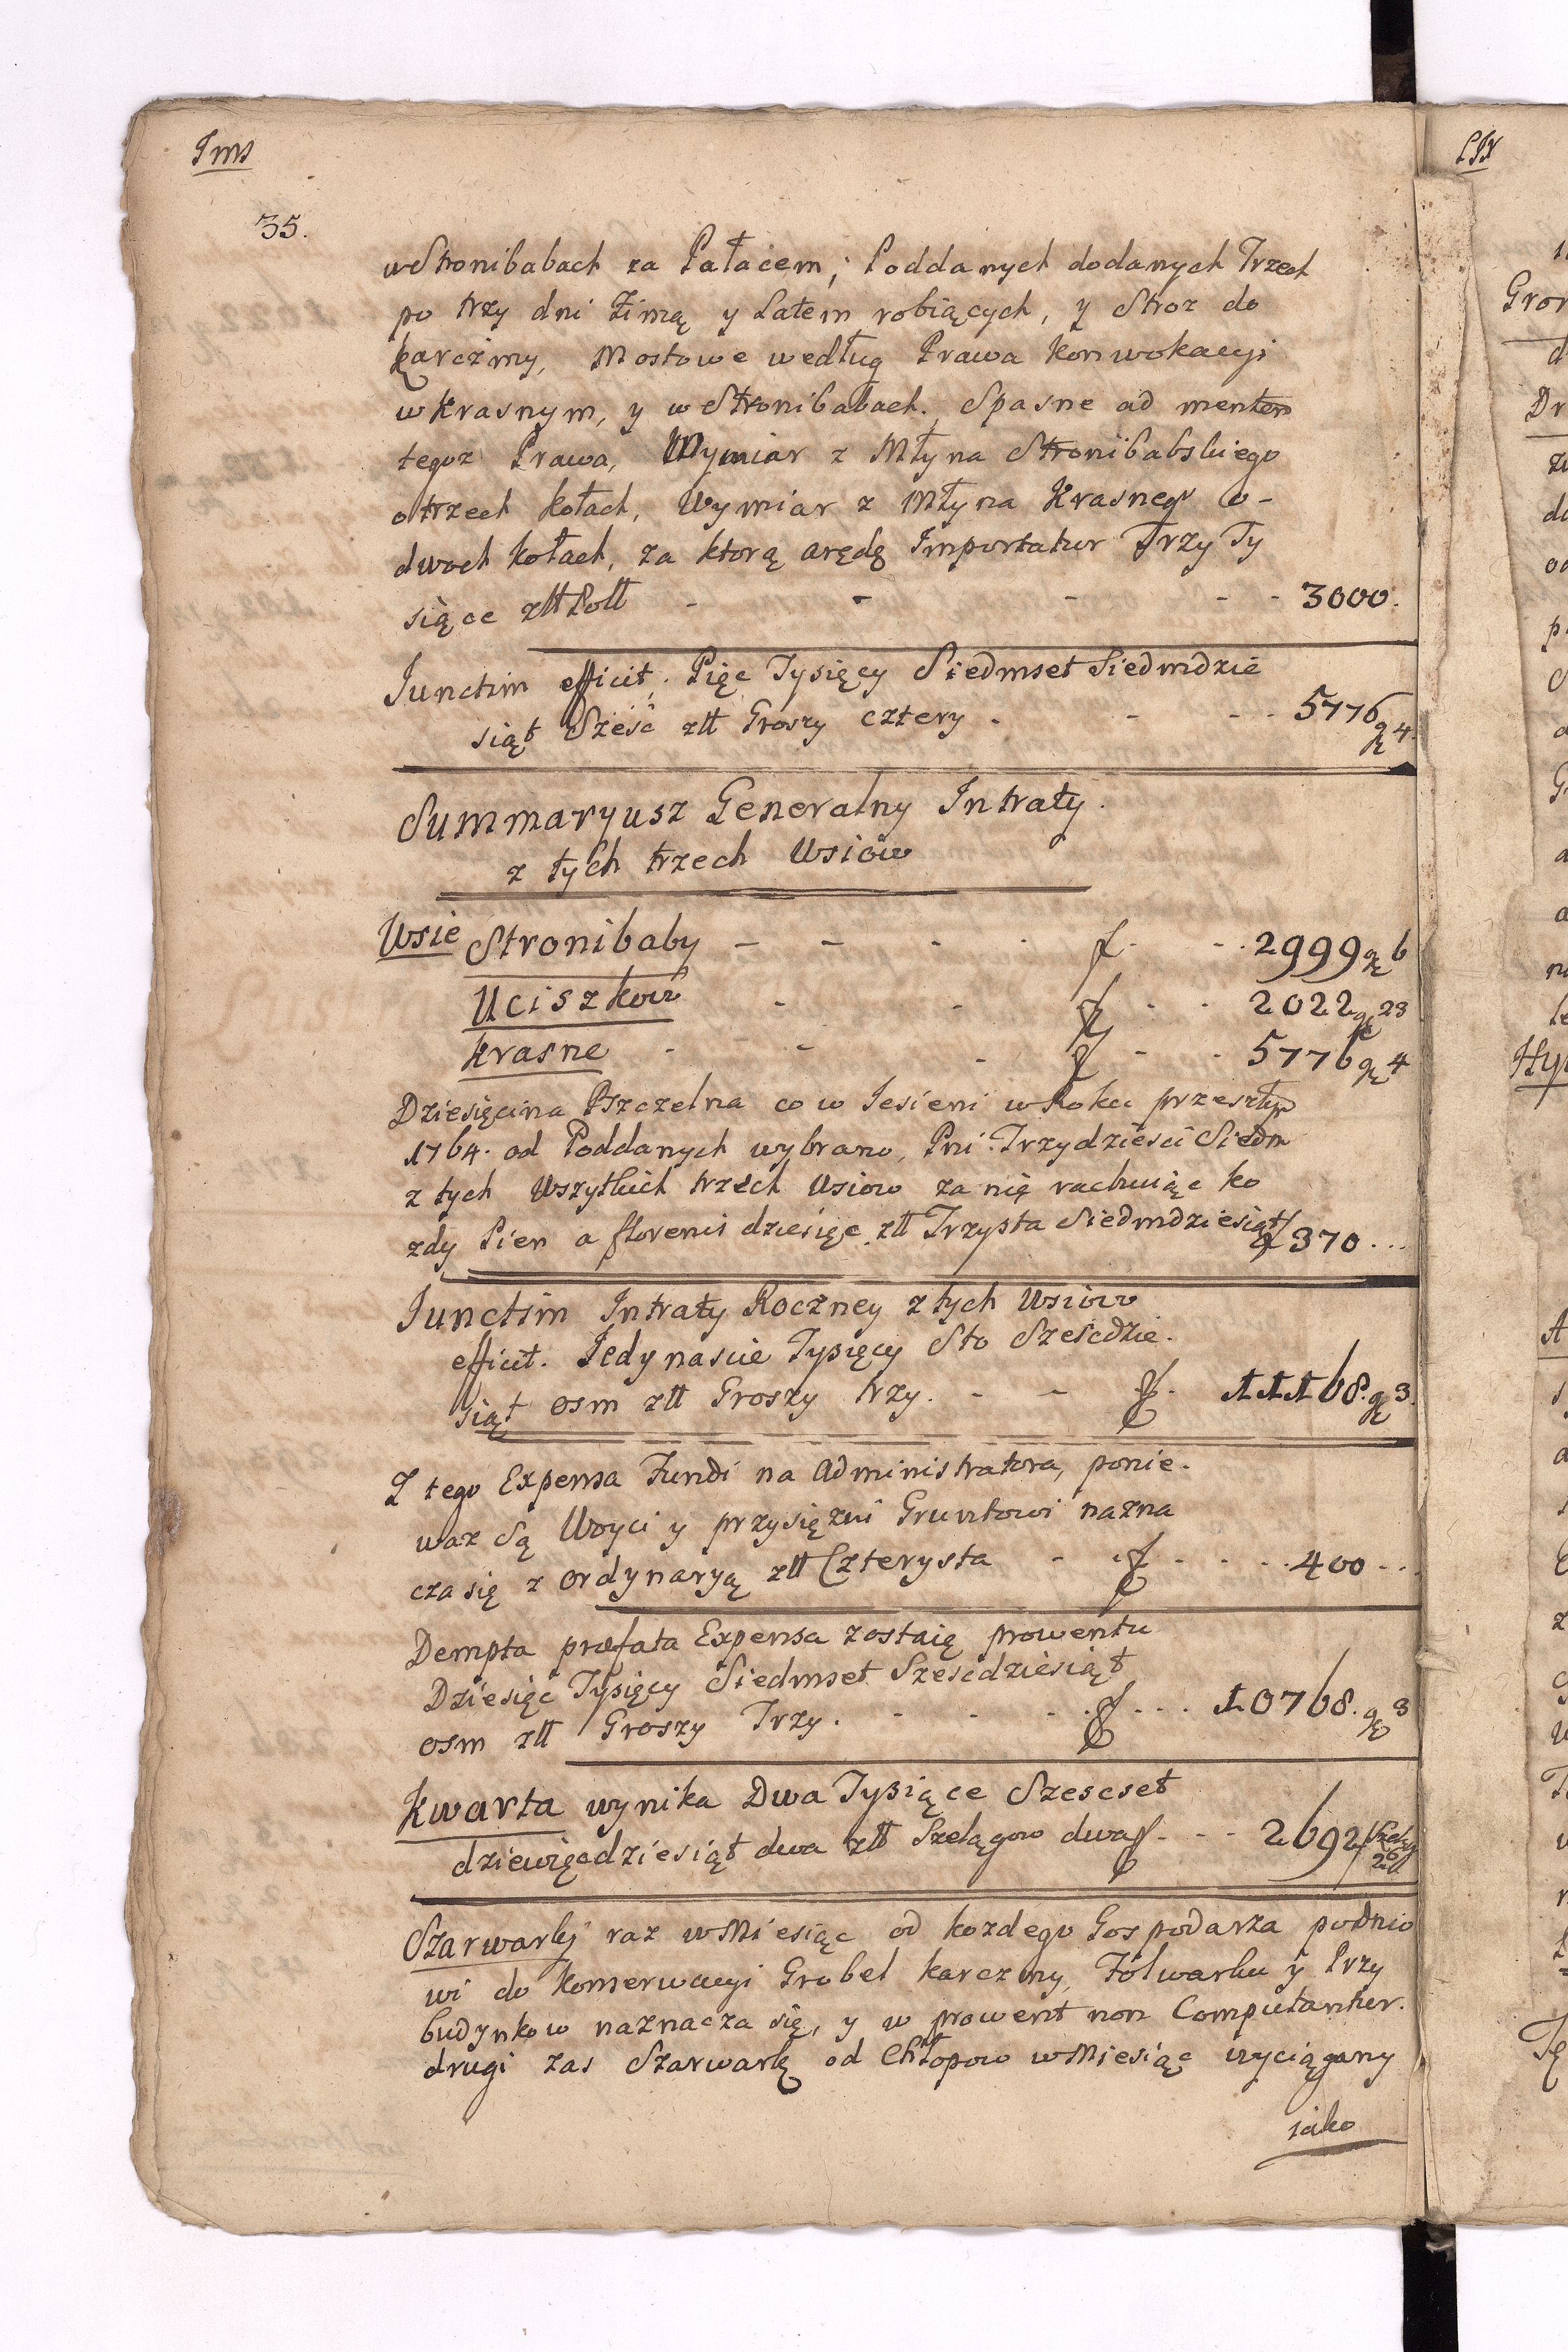 Ims
35.
w Stronibabach za Pałacem, Poddanych dodanych Trzech
po trzy dni Zimą y Latem robiących, y Stroz do
karczmy, Mostowe według Prawa konwokacyi
w krasnym, y w Stronibabach. Spasne ad mentem
tegoz Prawa, Wymiar z Młyna Stronibabskiego
o trzech kołach, Wymiar z Młyna Krasnego o-
dwoch kołach, za ktorą arędę Importatur Trzy Ty
siące złł Poll - - - - - 3000.
Iunctim efficit. Pięc Tysięcy Siedmset Siedmdzie
siąt Sześć złł Groszy cztery. - - - 5776 gr 4.
Summaryusz Generalny Intraty.
z tych trzech Wsiów
Wsie Stronibaby - - - - f. - - 2999 gr 6
Uciszkow - - f - - 2022 gr 23
Krasne - - - f - - 5776 gr 4
Dziesięcina Pszczelna co w Iesieni w Roku przeszłym
1764. od Poddanych wybrano, Pni. Trzydzieści Siedm
z tych Wszytkich trzech Wsiow za nię rachuiąc ko
zdy Pien a florenis dziesięc złł Trzysta Siedmdziesiąt f 370 ...
Iunctim Intraty Roczney z tych Wsiow
efficit. Iedynascie Tysięcy Sto Sześcdzie-
siąt osm złł Groszy trzy. - - f. 11168. gr 3.
Z tego Expensa Fundi na Administratora, ponie-
waz Są Woyci y przysięzni Gruntowi nazna
cza się z ordynaryą złł Czterysta - f - - - 400 ...
Dempta præfata Expensa zostaią prowentu
Dziesięc Tysięcy Siedmset Szescdziesiąt
osm złł Groszy Trzy. - - - f ... 10768. gr 3
Kwarta wynika Dwa Tysiące Szescset
dziewięcdziesiąt dwa złł Szelągow dwa f. - - 2692
Szarwarky raz w Miesiąc od kozdego Gospodarza po dnio
wi do konserwacyi Grobel karczmy, Folwarku y Przy
budynkow naznacza się, y w prowent non Computantur.
drugi zas Szarwark od Chłopow w Miesiąc wyciągany
iako
LIX